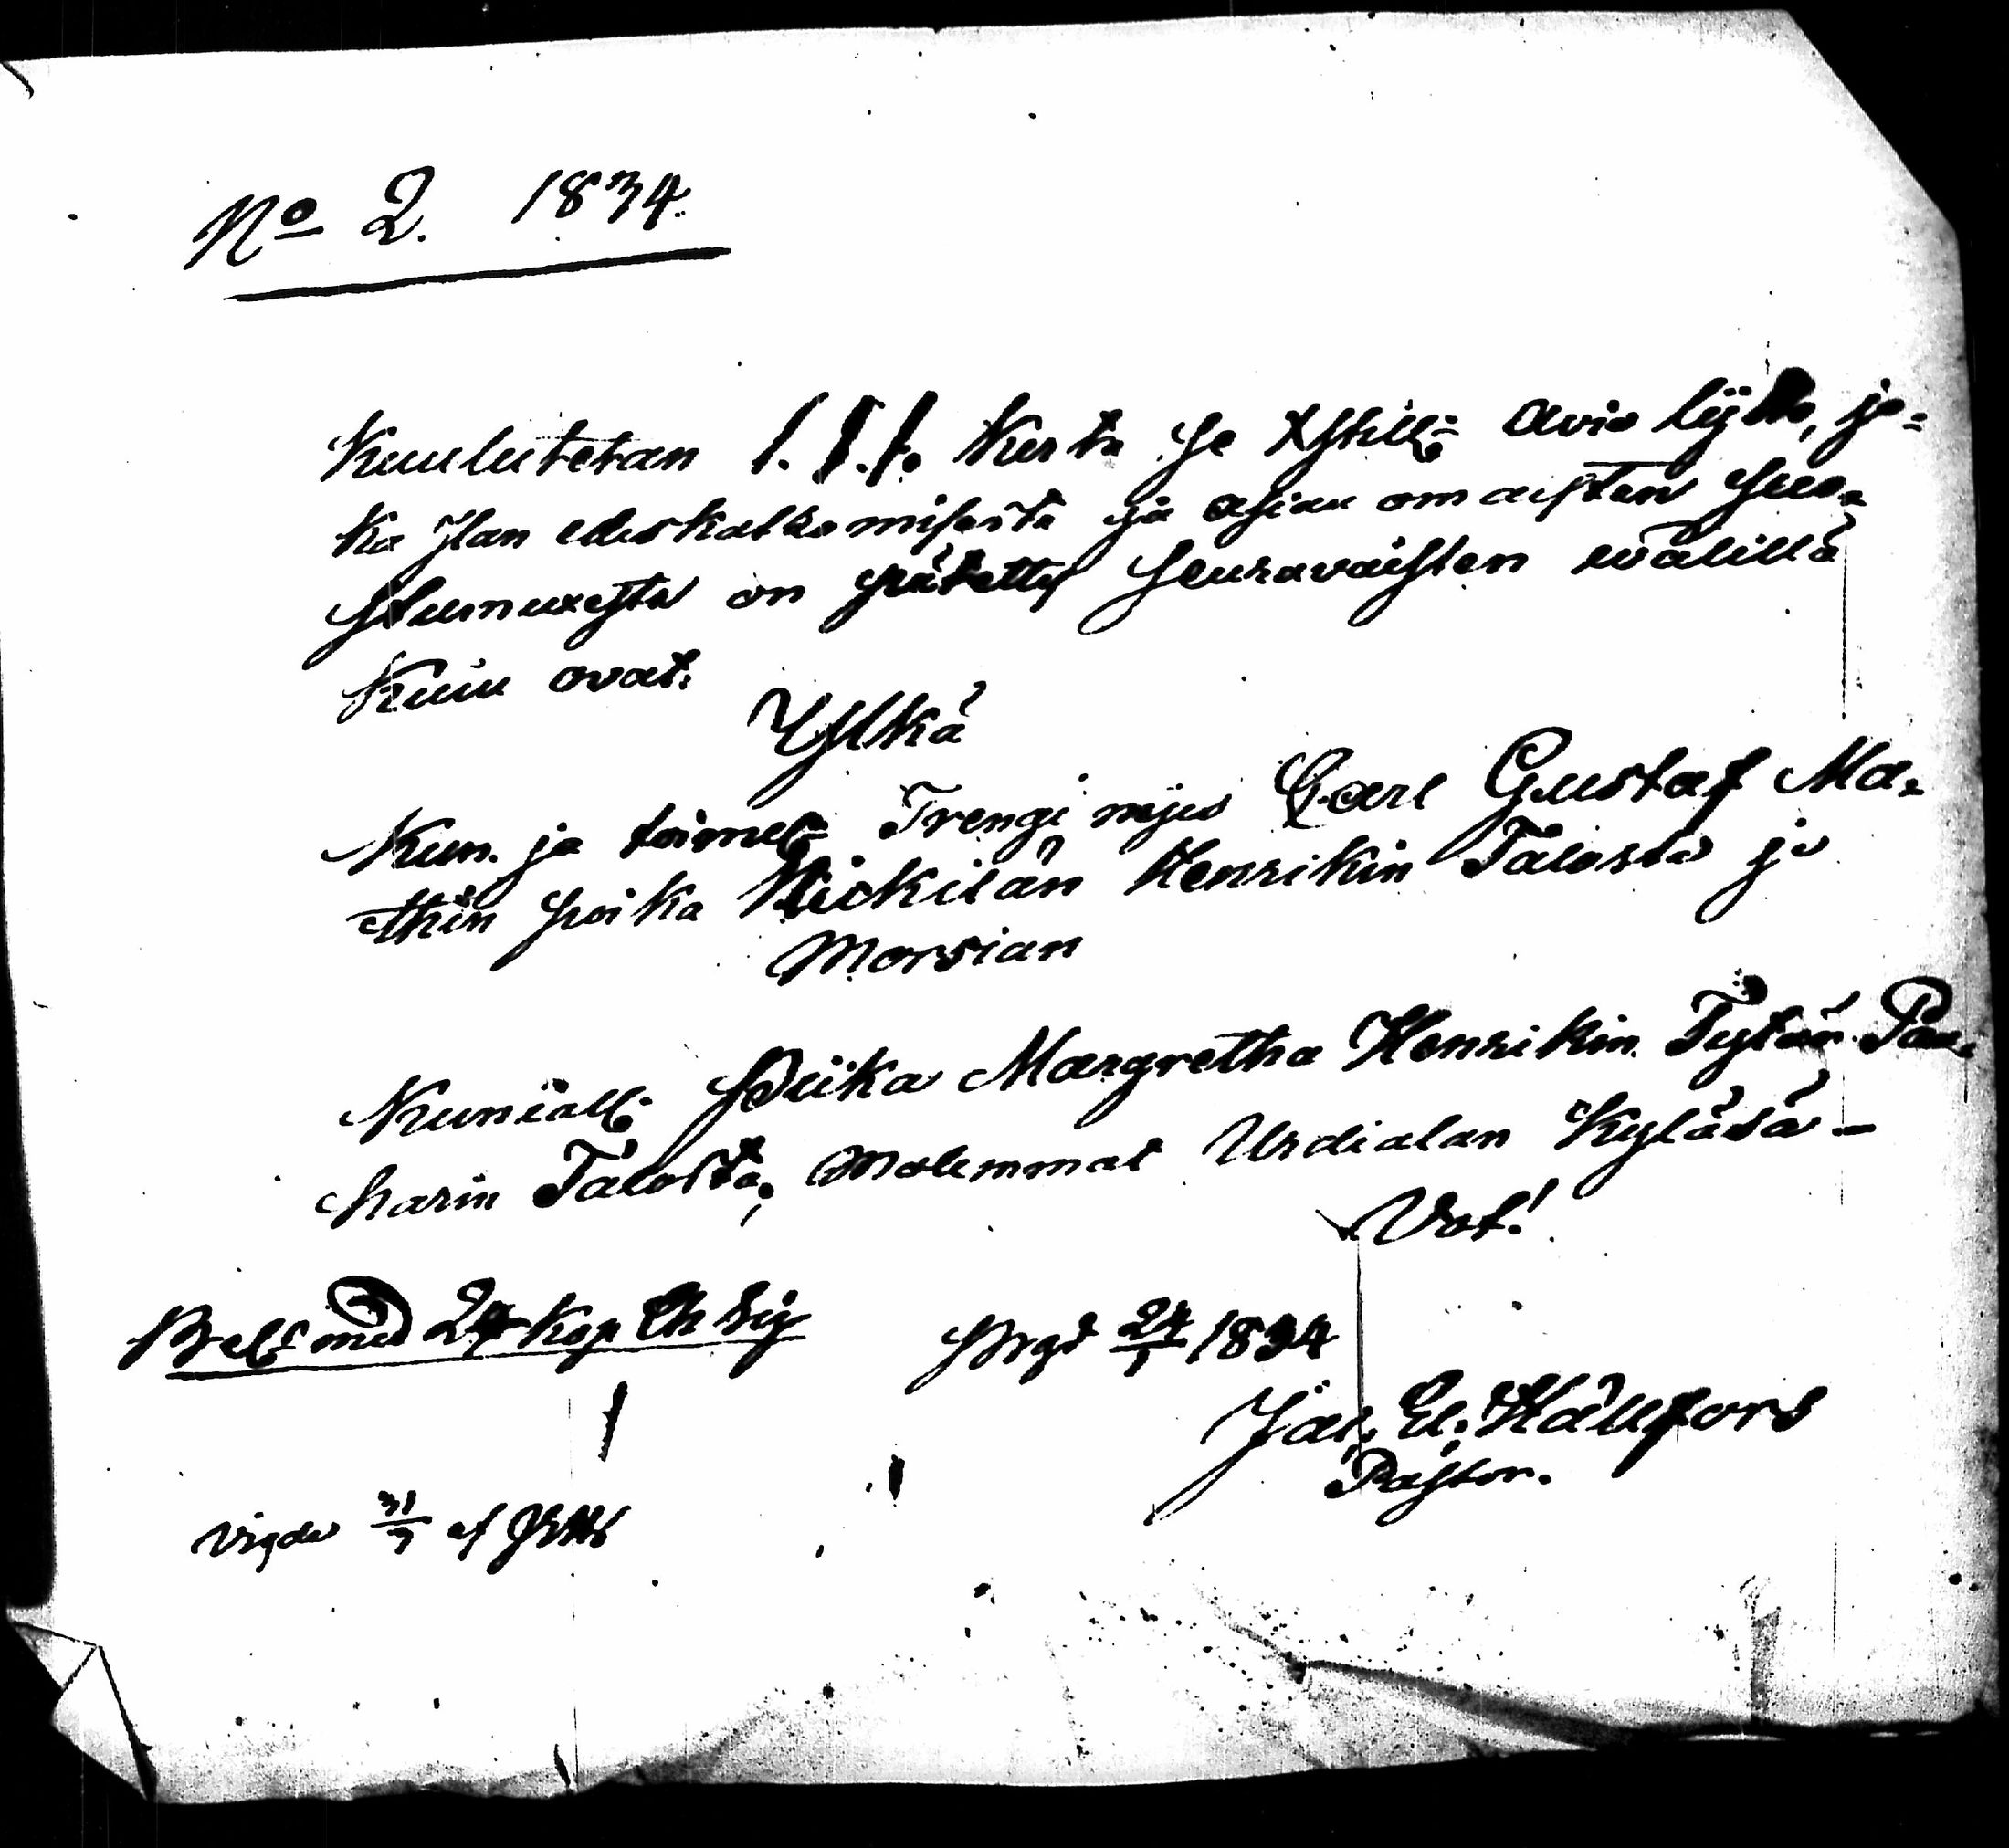 No 2. 1834.
Kuulutetan 1. 1. 1. Kerta se Xstill: Avio lijtto, jo=
ka Ilan edeskatzomisesta ja asian omaisten suo=
stumuxesta on päätetty seuravaisten wälillä
Kuin ovat:
Ylkä
Kun. ja toimel: Trengi mjes Carl Gustaf Ma=
thin poika Nickilän Henrikin Talosta ja
Morsian
Kuniall: Piika Margretha Henrikin Tytär Pa=
harin Talosta, Molemmat Urdialan Kyläsä -
Vot!
Bel: med 24 Kop Ch Sig
Brgd 24/1 1834
Jac. Ed. Hällfors
Pastor.
Vigde 31/3 af